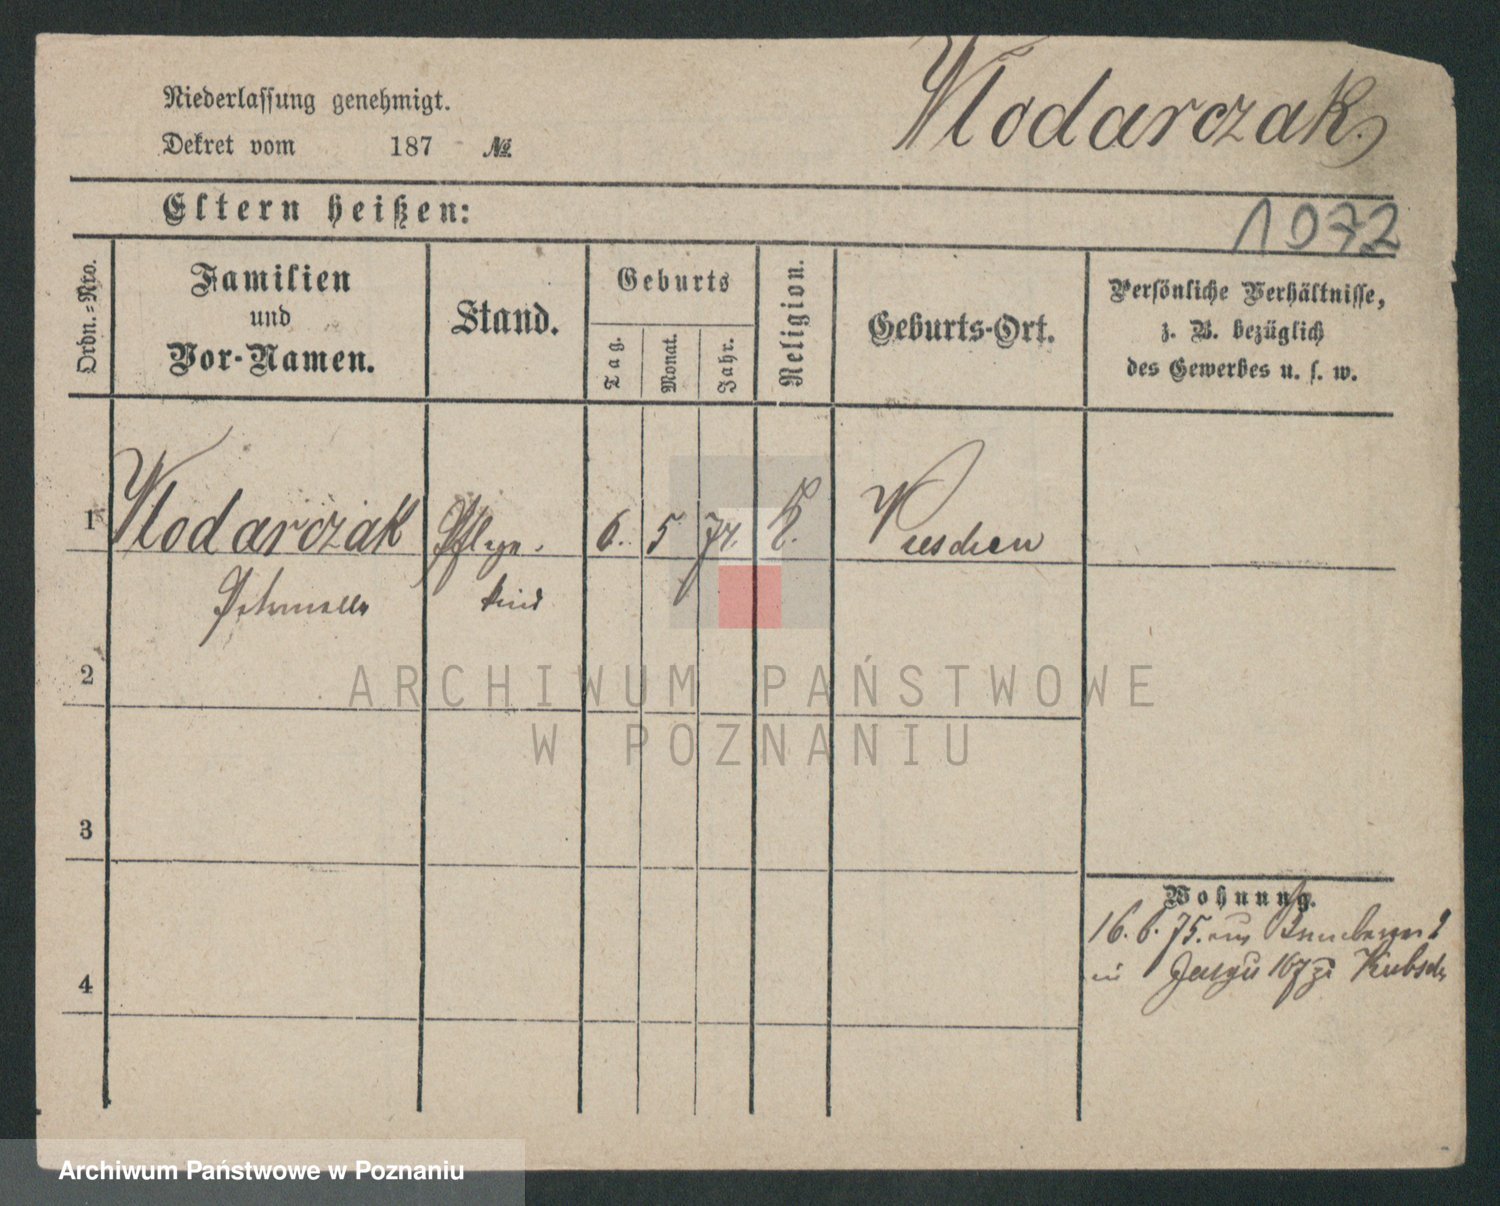 Wlodarczak.
Niederlassung genehmigt.
Dekret vom 187 №
Eltern heißen:
1072
Ordn.-Nro.
Familien
und
Vor-Namen.
Stand.
Geburts
Tag.
Monat.
Jahr.
Religion.
Geburts-Ort.
Persönliche Verhältnisse,
z. B. bezüglich
des Gewerbes u. s. w.
1 Wlodarczak Pflege- 6. 5 74. K.
Petronella kind
2
ARCHIWUM PAŃSTWOWE
W POZNANIU
3
Wohnung.
16. 6. 75. aus
in 167
4
Archiwum Państwowe w Poznaniu